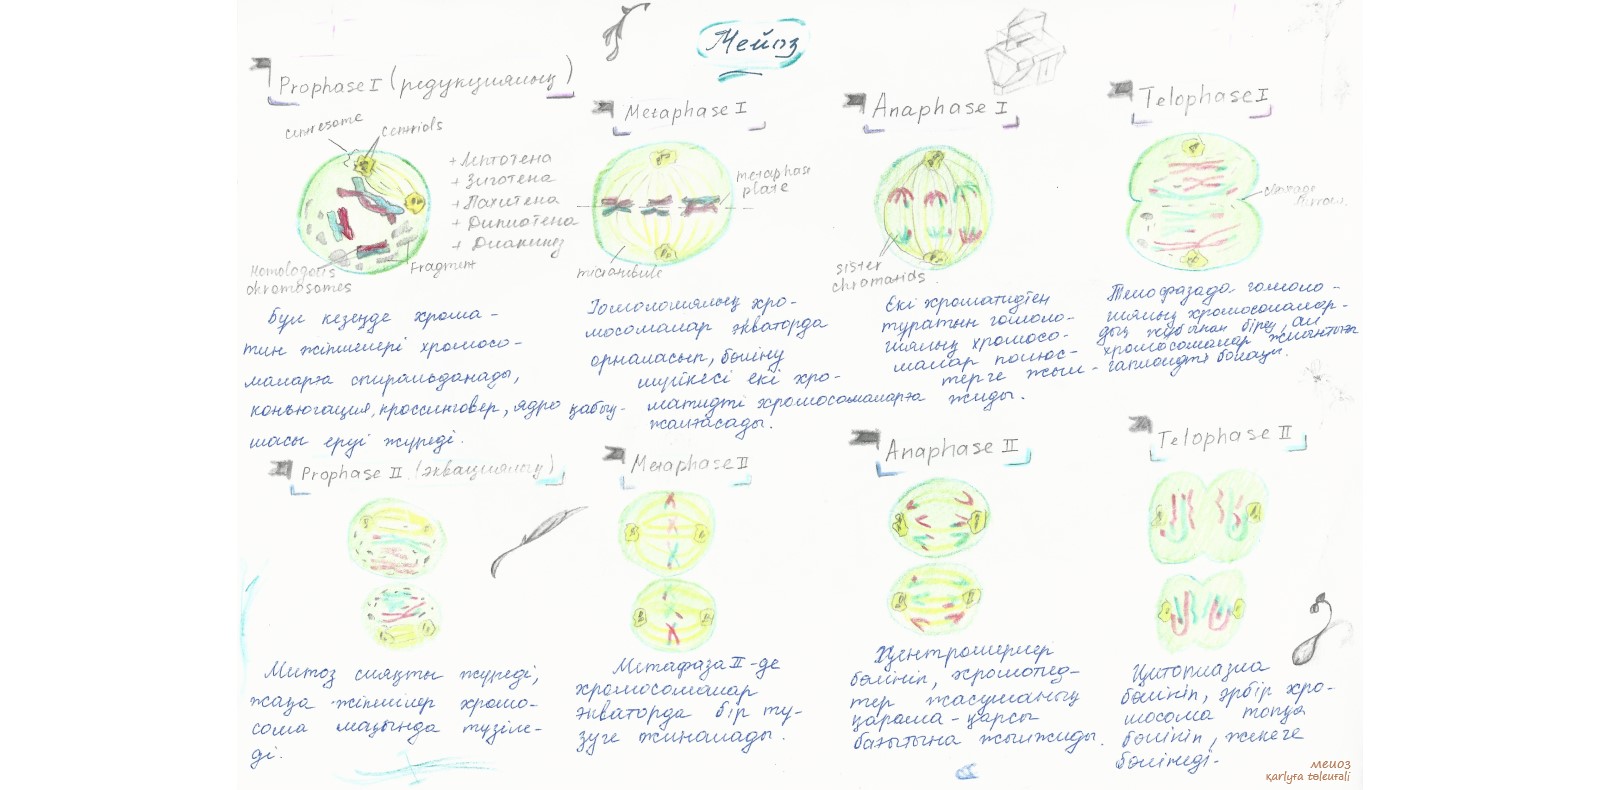 Мейоз
Prophase I (редукциялық)
centresome
centriols
+ Лептотена
+ Зиготена
+ Пахитена
+ Диплотена
+ Диакинез
Homologous
chromosomes
Fragment
Бұл кезеңде хрома-
тин жіпшелері хромосо-
маларға спиральданады,
коньюгация, кроссинговер, ядро қабық-
шасы еруі жүреді.
Metaphase I
metaphase
plate
microtubule
Гомологиялық хро-
мосомалар экваторда
орналасып, бөліну
шүйкесі екі хро-
матидті хромосомаларға
жалғасады.
Anaphase I
sister
chromatids
Екі хроматидтен
тұратын гомоло-
гиялық хромосо-
малар полюс-
терге жыл-
жиды.
Telophase I
cleavage
furrow.
Телофазада гомоло-
гиялық хромосомалар-
дың жұбынан біреу, ал
хромосомалар жиынтығы
гаплоидті болады.
Prophase II (эквациялық)
Митоз сияқты жүреді,
жаңа жіпшелер хромо-
сома маңында түзіле-
ді.
Metaphase II
Метафаза II-де
хромосомалар
экваторда бір тү-
зуге жиналады.
Anaphase II
Центромерлер
бөлініп, хромотид-
тер жасушаның
қарама-қарсы
бағытына жылжиды.
Telophase II
Цитоплазма
бөлініп, әрбір хро-
мосома топқа
бөлініп, жекеге
бөлінеді.
мейоз
qarlyға tөleuғali